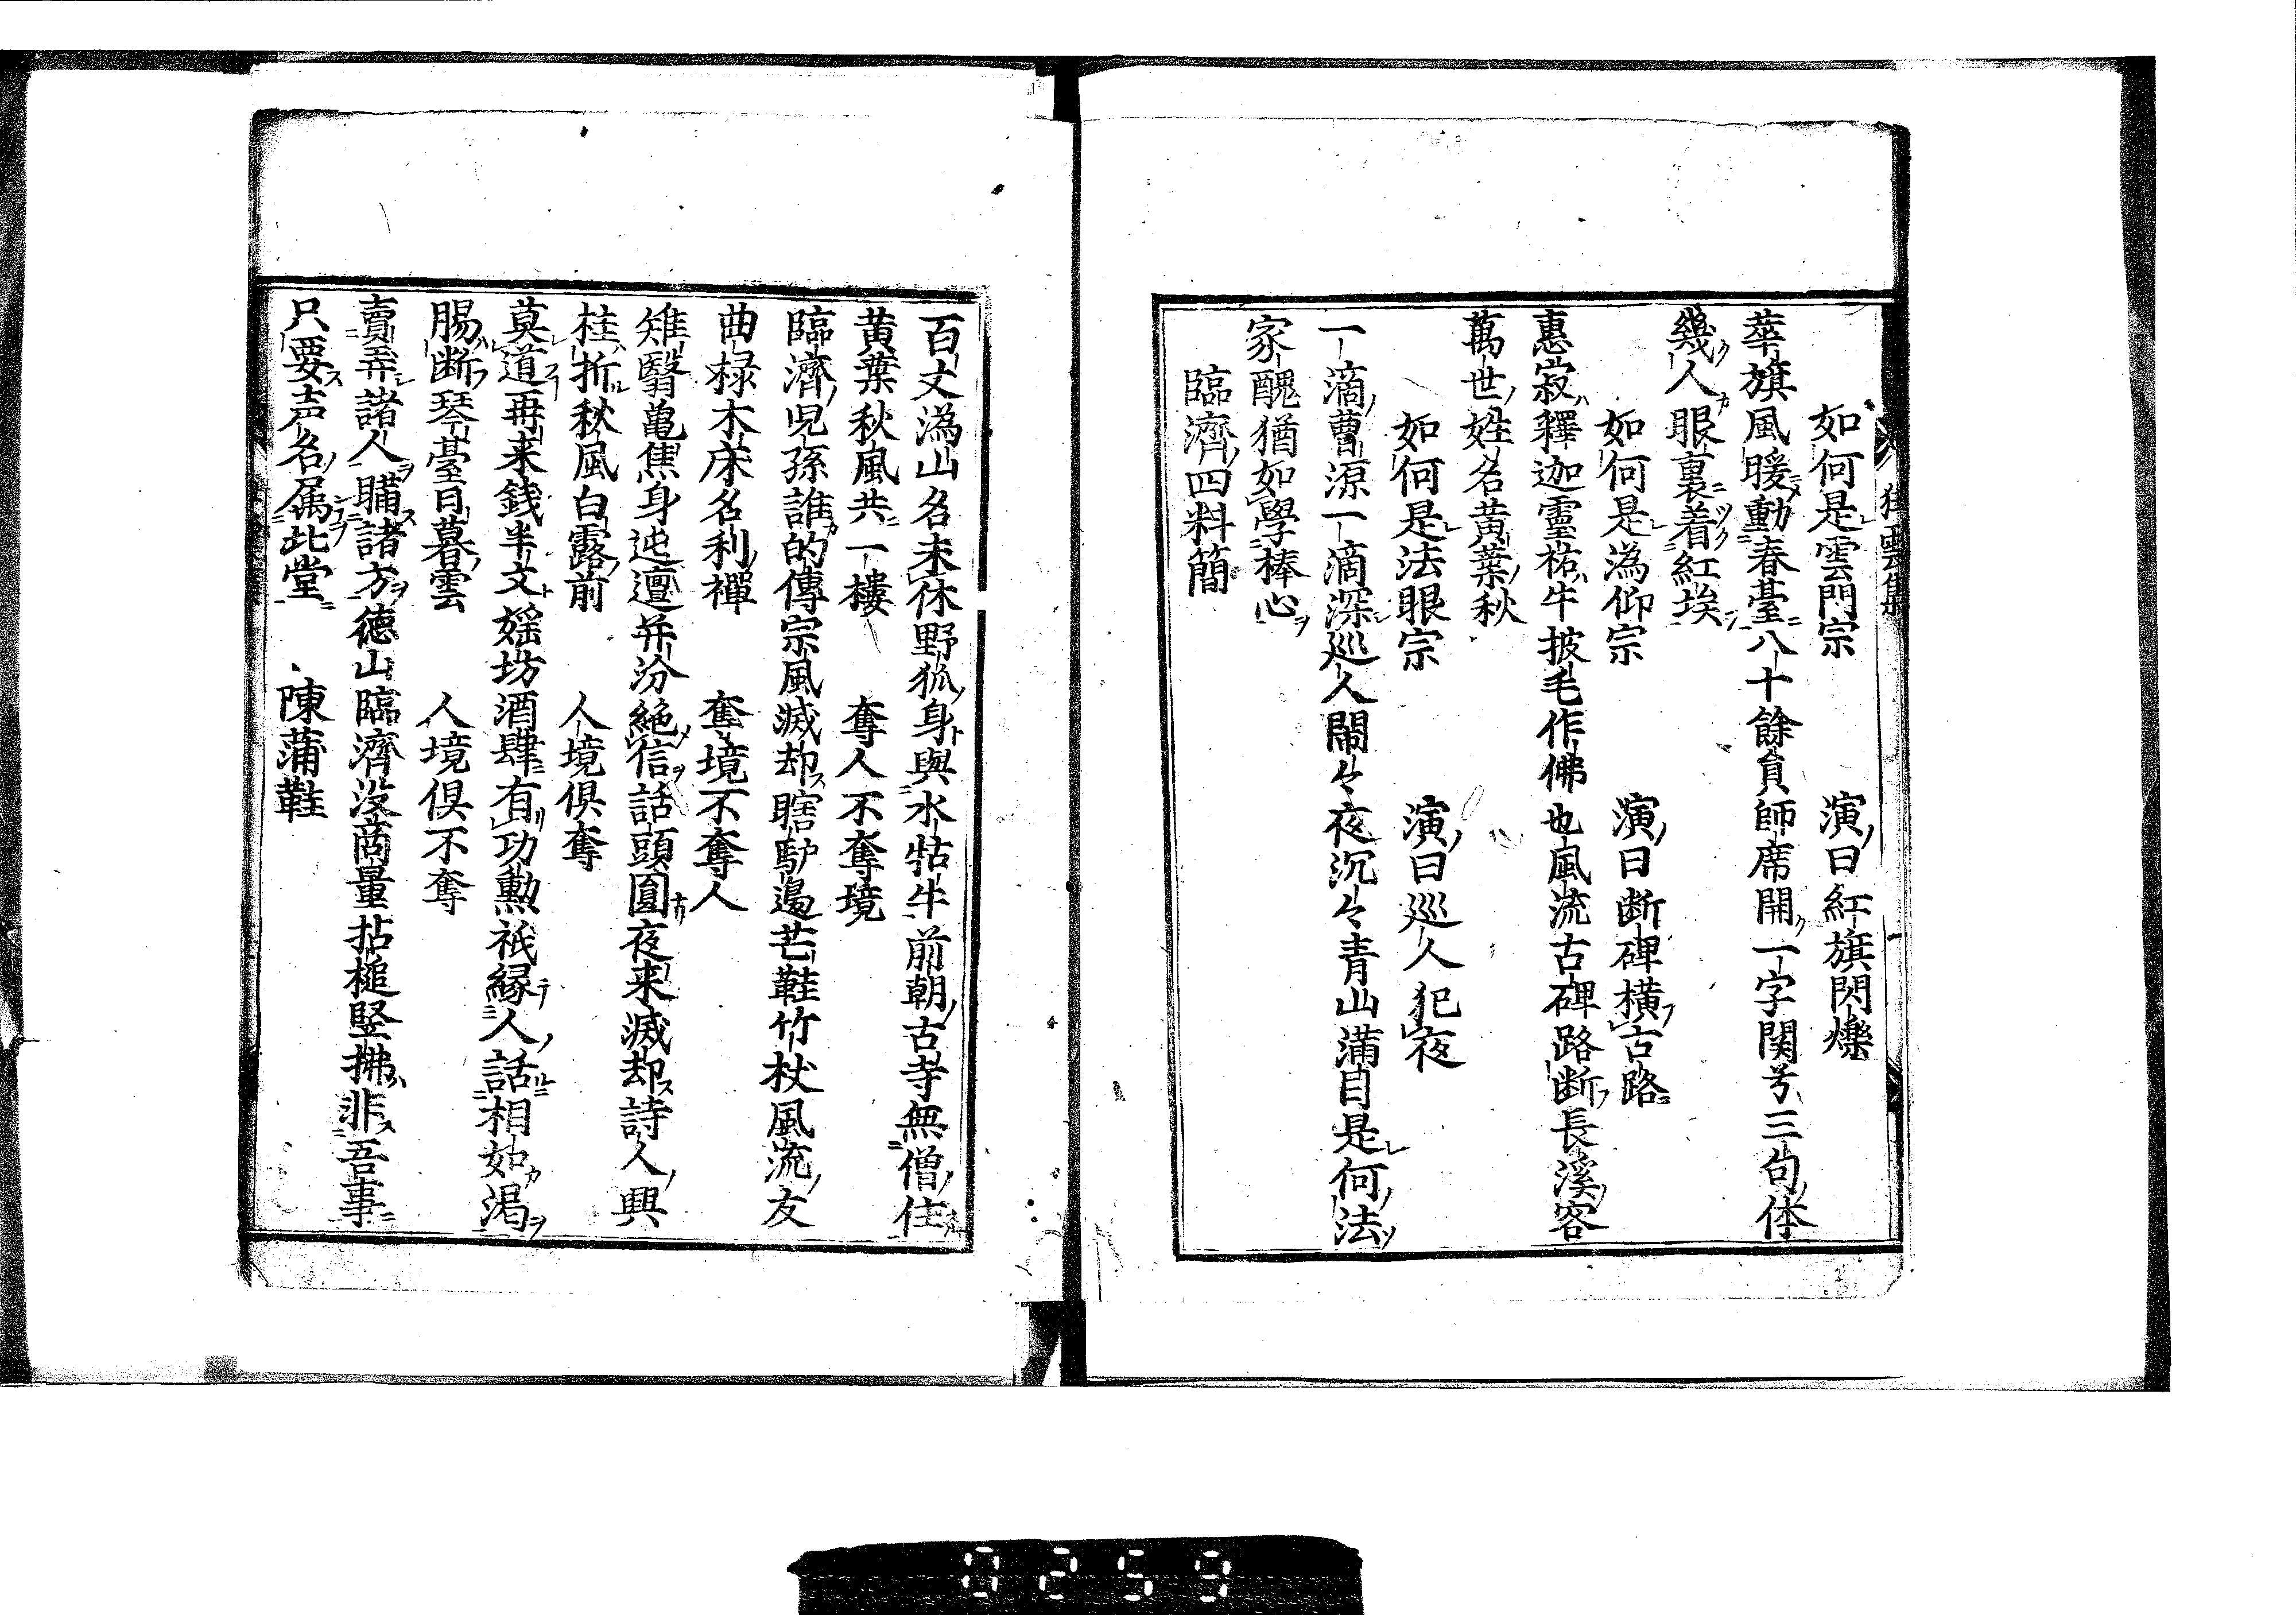 狂雲集
如何是雲門宗　演曰紅旗閃爍
華旗風暖動春臺八十餘貟師席開一字関兮三句体
幾人眼裏着紅埃
如何是潙仰宗　演曰断碑橫古路
惠寂釋迦靈祐牛披毛作佛也風流古碑路断長溪客
萬世姓名黄葉秋
如何是法眼宗　演曰巡人犯夜
一滴曹源一滴深巡人閙々夜沉々青山満目是何法
家醜猶如學棒心
臨濟四料簡
百丈潙山名未休野狐身與水牯牛前朝古寺無僧住
黄葉秋風共一樓　奪人不奪境
臨濟児孫誰的傳宗風滅却瞎驴邉芒鞋竹杖風流友
曲椂木床名利禪　奪境不奪人
雉翳亀焦身迍邅并汾絶信話頭圓夜来滅却詩人興
桂折秋風白露前　人境倶奪
莫道再来錢半文婬坊酒肆有功勲祇縁人話相如渇
腸断琴臺日暮雲　人境倶不奪
賣弄諸人瞞諸方徳山臨濟没商量拈槌竪拂非吾事
只要声名属北堂　陳蒲鞋
0259